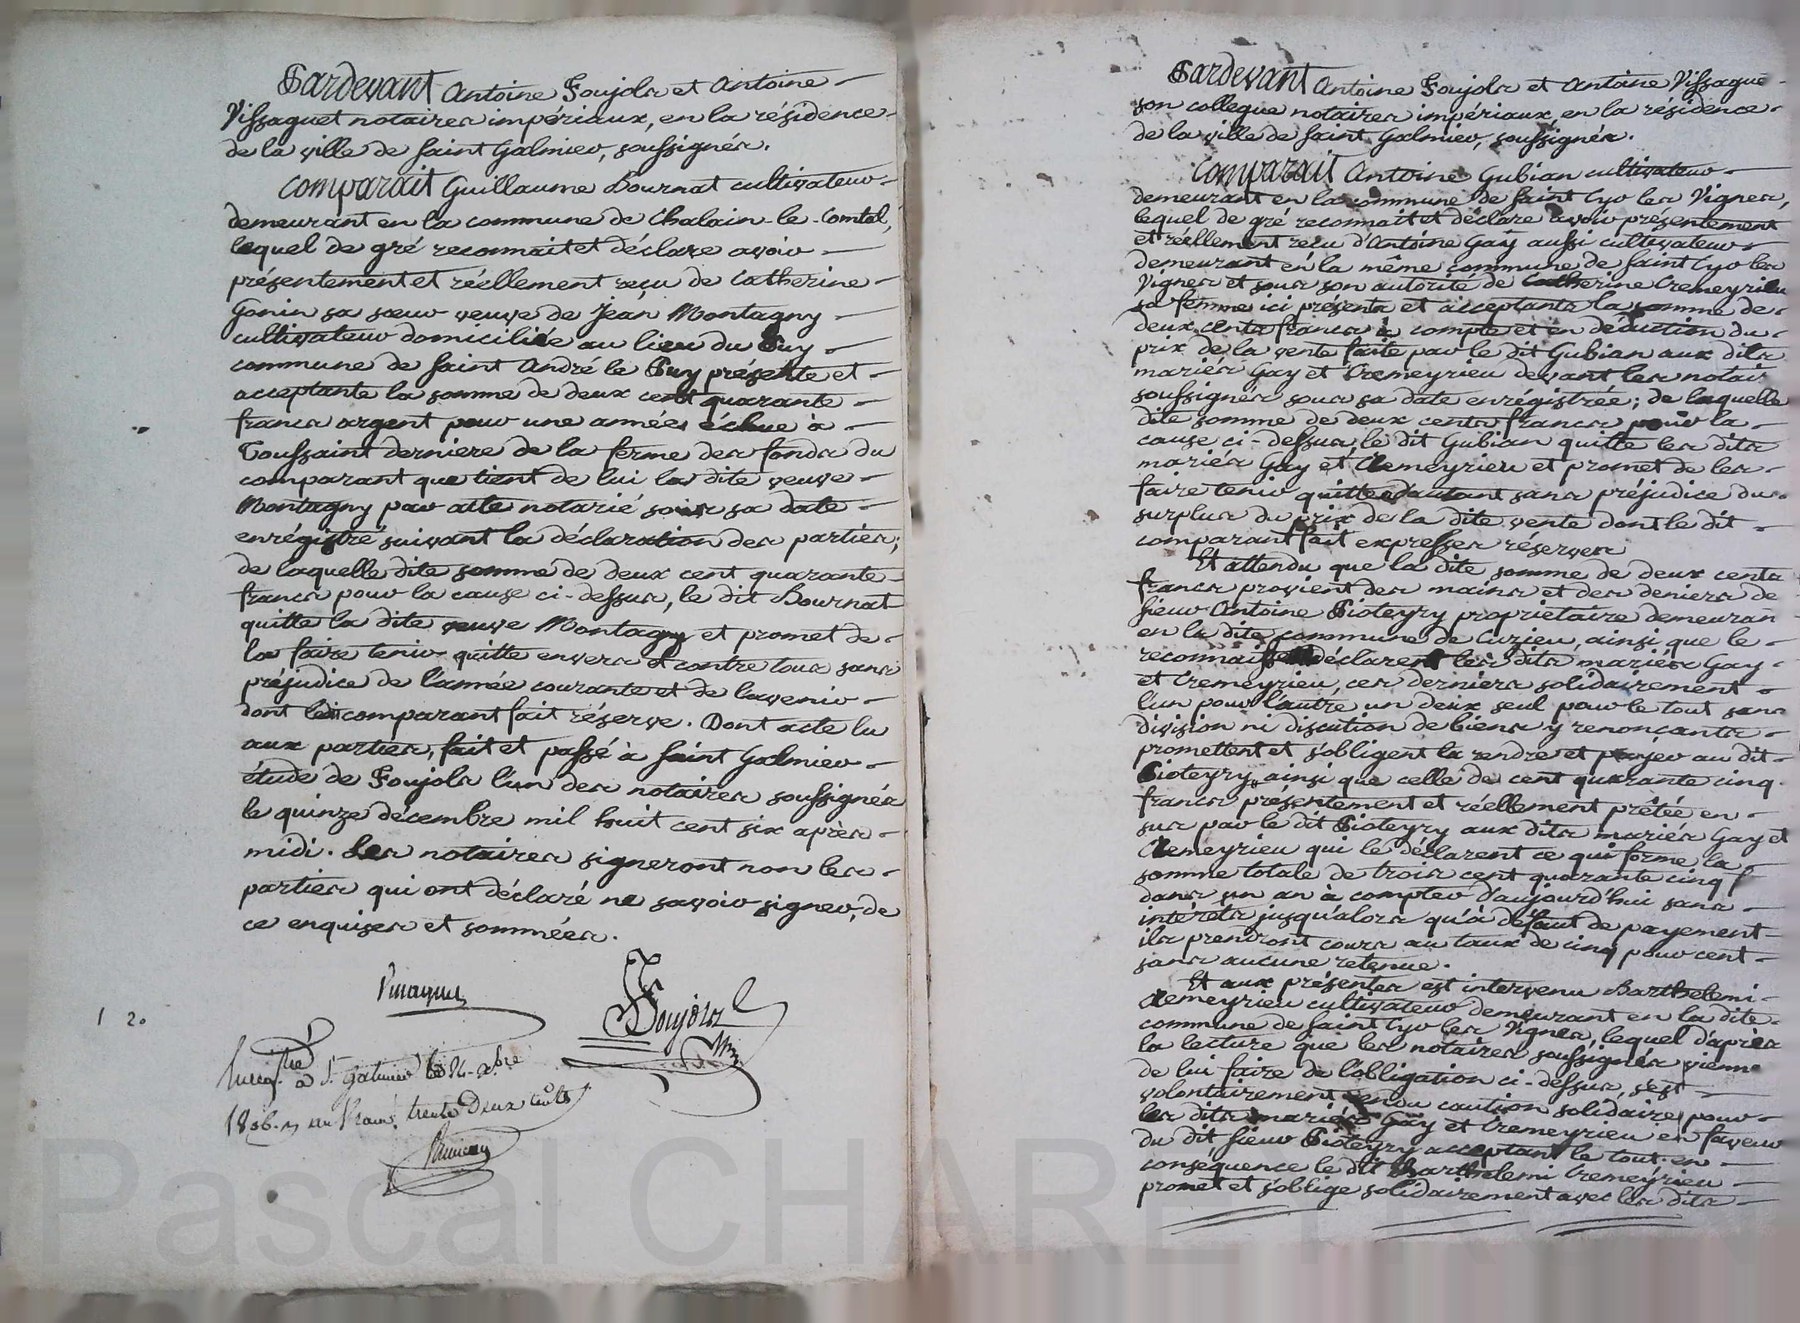 Pardevant Antoine Poujola et Antoine
Vissaguet notaires impériaux, en la résidence
de la ville de Saint Galmier, soussignés.
Comparait Guillaume Bournat cultivateur
demeurant en la commune de Chalain-le-Comtal,
lequel de gré reconnait et déclare avoir
présentement et réellement reçu de Catherine
Gonin sa sœur veuve de Jean Montagny
cultivateur domiciliée au lieu du Puy
commune de Saint André le Puy présente et
acceptante la somme de deux cent quarante
francs argent pour une année échue à
Toussaint derniere de la ferme des fonds du
comparant que tient de lui la dite veuve
Montagny par acte notarié sous sa date
enrégistré suivant la déclaration des parties;
de laquelle dite somme de deux cent quarante
francs pour la cause ci-dessus, le dit Bournat
quitte la dite veuve Montagny et promet de
la faire tenir quitte envers et contre tous sans
préjudice de l'année courante et de l'avenir
dont le comparant fait réserve. Dont acte lu
aux parties, fait et passé à Saint Galmier
étude de Poujola l'un des notaires soussignés
le quinze décembre mil huit cent six après
midi. Les notaires signeront non les
parties qui ont déclaré ne savoir signer, de
ce enquises et sommées.
Vissaguet
Poujola
1 20
Enreg.tré à St. Galmier le 24 Xbre
1806. un franc trente deux cent.
Pardevant Antoine Poujola et Antoine Vissaguet
son collegue notaires impériaux, en la résidence
de la ville de Saint Galmier, soussignés.
Comparait Antoine Gubian cultivateur
demeurant en la commune de Saint Cyr les Vignes,
lequel de gré reconnait et déclare avoir présentement
et réellement reçu d'Antoine Gay aussi cultivateur
demeurant en la même commune de Saint Cyr les
Vignes et sous son autorité de Catherine Cremeyrieu
sa femme ici présents et acceptants la somme de
deux cents francs à compte et en déduction du
prix de la vente faite par le dit Gubian aux dits
mariés Gay et Cremeyrieu devant les notair
soussignés sous sa date enrégistrée; de laquelle
dite somme de deux cents francs pour la
cause ci-dessus, le dit Gubian quitte les dits
mariés Gay et Cremeyrieu et promet de les
faire tenir quittes d'autant sans préjudice du
surplus du prix de la dite vente dont le dit
comparant fait expresses réserves
Et attendu que la dite somme de deux cents
francs provient des mains et des deniers de
sieur Antoine Pioteyry propriétaire demeuran
en la dite commune de Cuzieu, ainsi que le
reconnaissent déclarent les dits mariés Gay
et Cremeyrieu, ces derniers solidairement
l'un pour l'autre, un deux seul pour le tout sans
division ni discution de biens y renonçants
promettent et s'obligent la rendre et payer au dit
Pioteyry, ainsi que celle de cent quarante cinq
francs présentement et réellement prêtée en
sus par le dit Pioteyry aux dits mariés Gay et
Cremeyrieu qui le déclarent ce qui forme la
somme totale de trois cent quarante cinq f
dans un an à compter d'aujourd'hui sans
intérets jusqu'alors qu'à défaut de payement
ils prendront cours au taux de cinq pour cent
sans aucune retenue.
Et aux présentes est intervenu Barthelemi
Cremeyrieu cultivateur demeurant en la dite
commune de Saint Cyr les Vignes, lequel d'après
la lecture que les notaires soussignés vienne
de lui faire de l'obligation ci-dessus, s'est
volontairement rendu caution solidaire pour
les dits mariés Gay et Cremeyrieu en faveur
du dit sieur Pioteyry acceptant le tout. en
conséquence le dit Barthelemi Cremeyrieu
promet et s'oblige solidairement avec les dits
Pascal CHARETRON